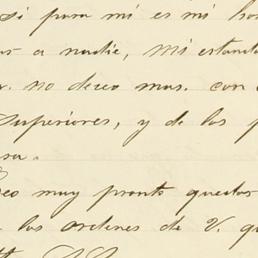 si para mi es mi hon
a nadie, mi estand
no deseo mas. con
superiores, y de los p
ra.
eo muy pronto quedar
las ordenes de V. qu